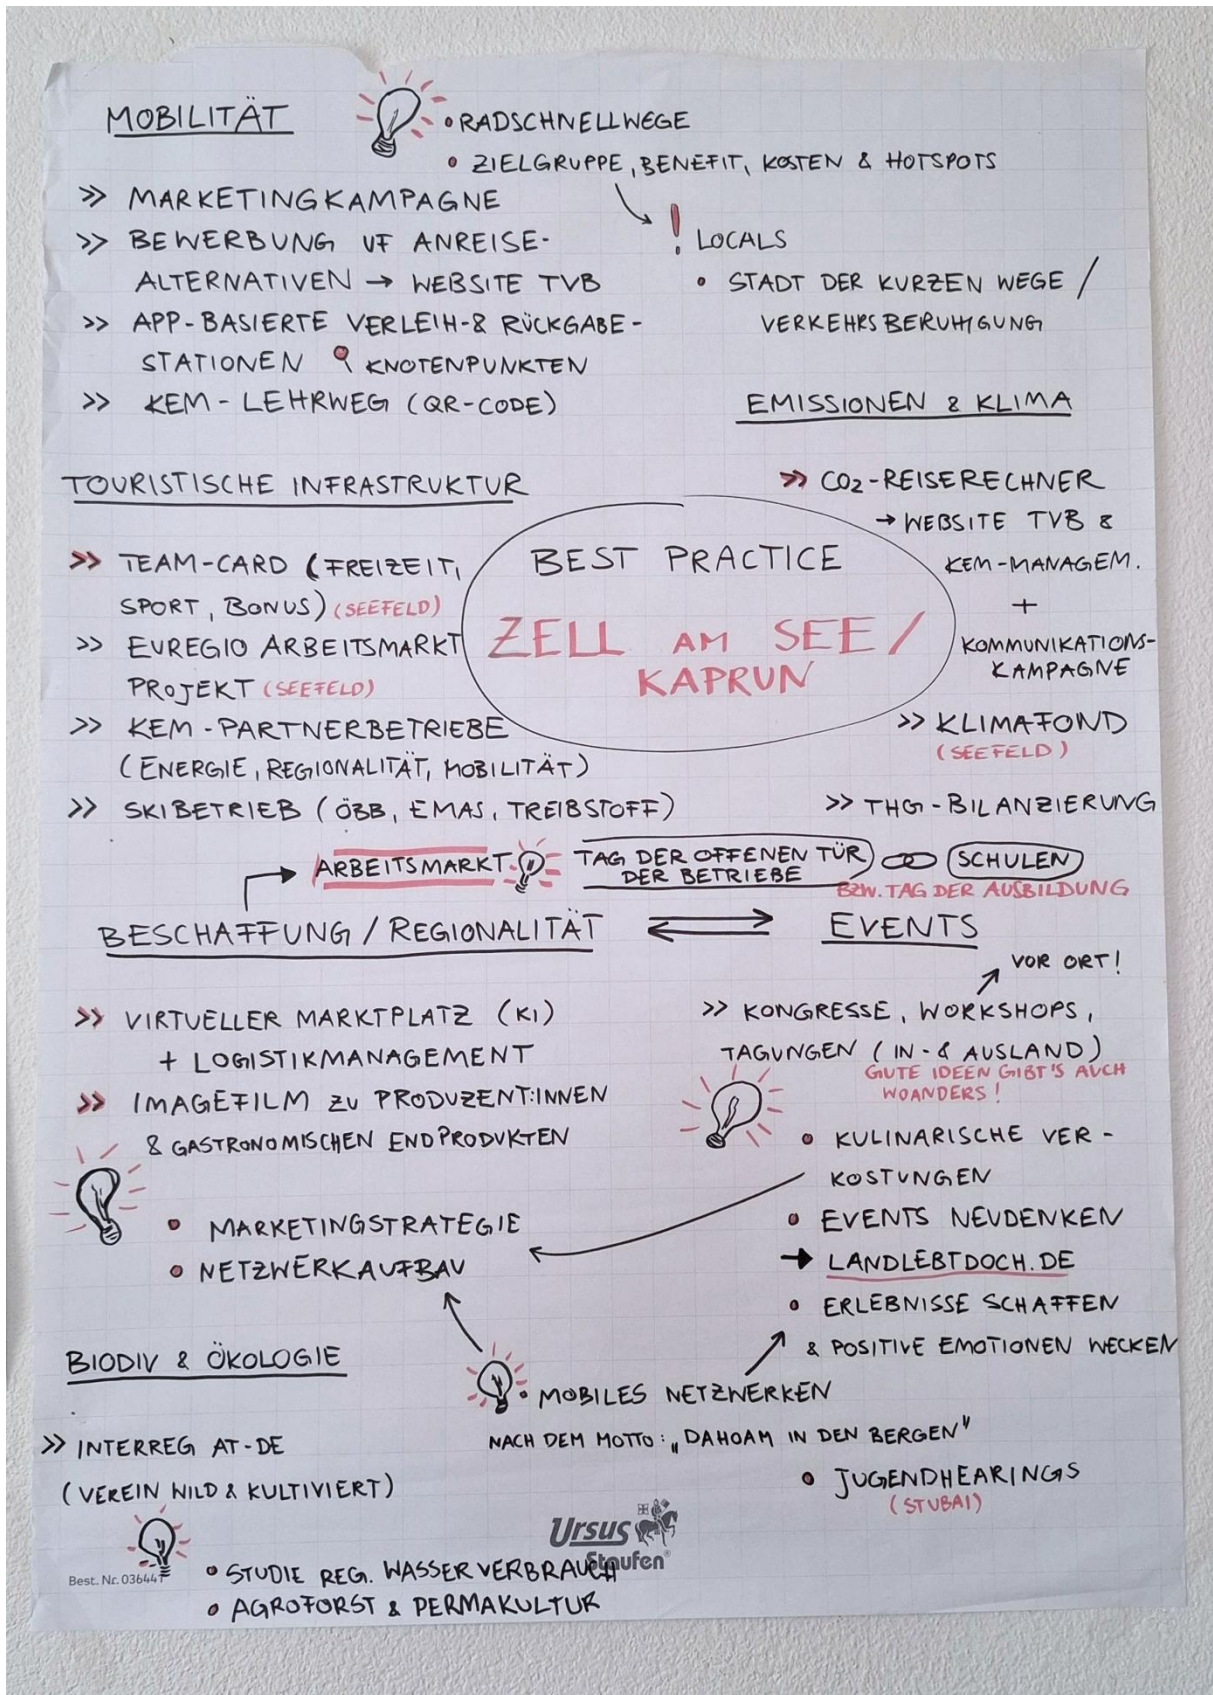 MOBILITÄT
• RADSCHNELLWEGE
• ZIELGRUPPE, BENEFIT, KOSTEN & HOTSPOTS
! LOCALS
• STADT DER KURZEN WEGE /
VERKEHRSBERUHIGUNG
>> MARKETINGKAMPAGNE
>> BEWERBUNG VF ANREISE-
ALTERNATIVEN → WEBSITE TVB
>> APP-BASIERTE VERLEIH-& RÜCKGABE-
STATIONEN KNOTENPUNKTEN
>> KEM-LEHRWEG (QR-CODE)
EMISSIONEN & KLIMA
>> CO2-REISERECHNER
→ WEBSITE TVB &
KEM-MANAGEM.
+
KOMMUNIKATIONS-
KAMPAGNE
>> KLIMAFOND
(SEEFELD)
>> THG-BILANZIERUNG
BEST PRACTICE
ZELL AM SEE /
KAPRUN
TOURISTISCHE INFRASTRUKTUR
>> TEAM-CARD (FREIZEIT,
SPORT, BONUS) (SEEFELD)
>> EUREGIO ARBEITSMARKT
PROJEKT (SEEFELD)
>> KEM-PARTNERBETRIEBE
(ENERGIE, REGIONALITÄT, MOBILITÄT)
>> SKIBETRIEB (ÖBB, EMAS, TREIBSTOFF)
ARBEITSMARKT TAG DER OFFENEN TÜR SCHULEN
DER BETRIEBE
BZW. TAG DER AUSBILDUNG
BESCHAFFUNG / REGIONALITÄT
EVENTS
VOR ORT!
>> VIRTUELLER MARKTPLATZ (KI)
+ LOGISTIKMANAGEMENT
>> IMAGEFILM ZU PRODUZENT:INNEN
& GASTRONOMISCHEN ENDPRODUKTEN
• MARKETINGSTRATEGIE
• NETZWERKAUFBAU
>> KONGRESSE, WORKSHOPS,
TAGUNGEN (IN-& AUSLAND)
GUTE IDEEN GIBT'S AUCH
WOANDERS!
• KULINARISCHE VER-
KOSTUNGEN
• EVENTS NEUDENKEN
→ LANDLEBTDOCH.DE
• ERLEBNISSE SCHAFFEN
& POSITIVE EMOTIONEN WECKEN
• MOBILES NETZWERKEN
NACH DEM MOTTO: „DAHOAM IN DEN BERGEN"
• JUGENDHEARINGS
(STUBAI)
BIODIV & ÖKOLOGIE
>> INTERREG AT-DE
(VEREIN WILD & KULTIVIERT)
• STUDIE REG. WASSERVERBRAUCH
• AGROFORST & PERMAKULTUR
Ursus
Staufen®
Best. Nr. 036441